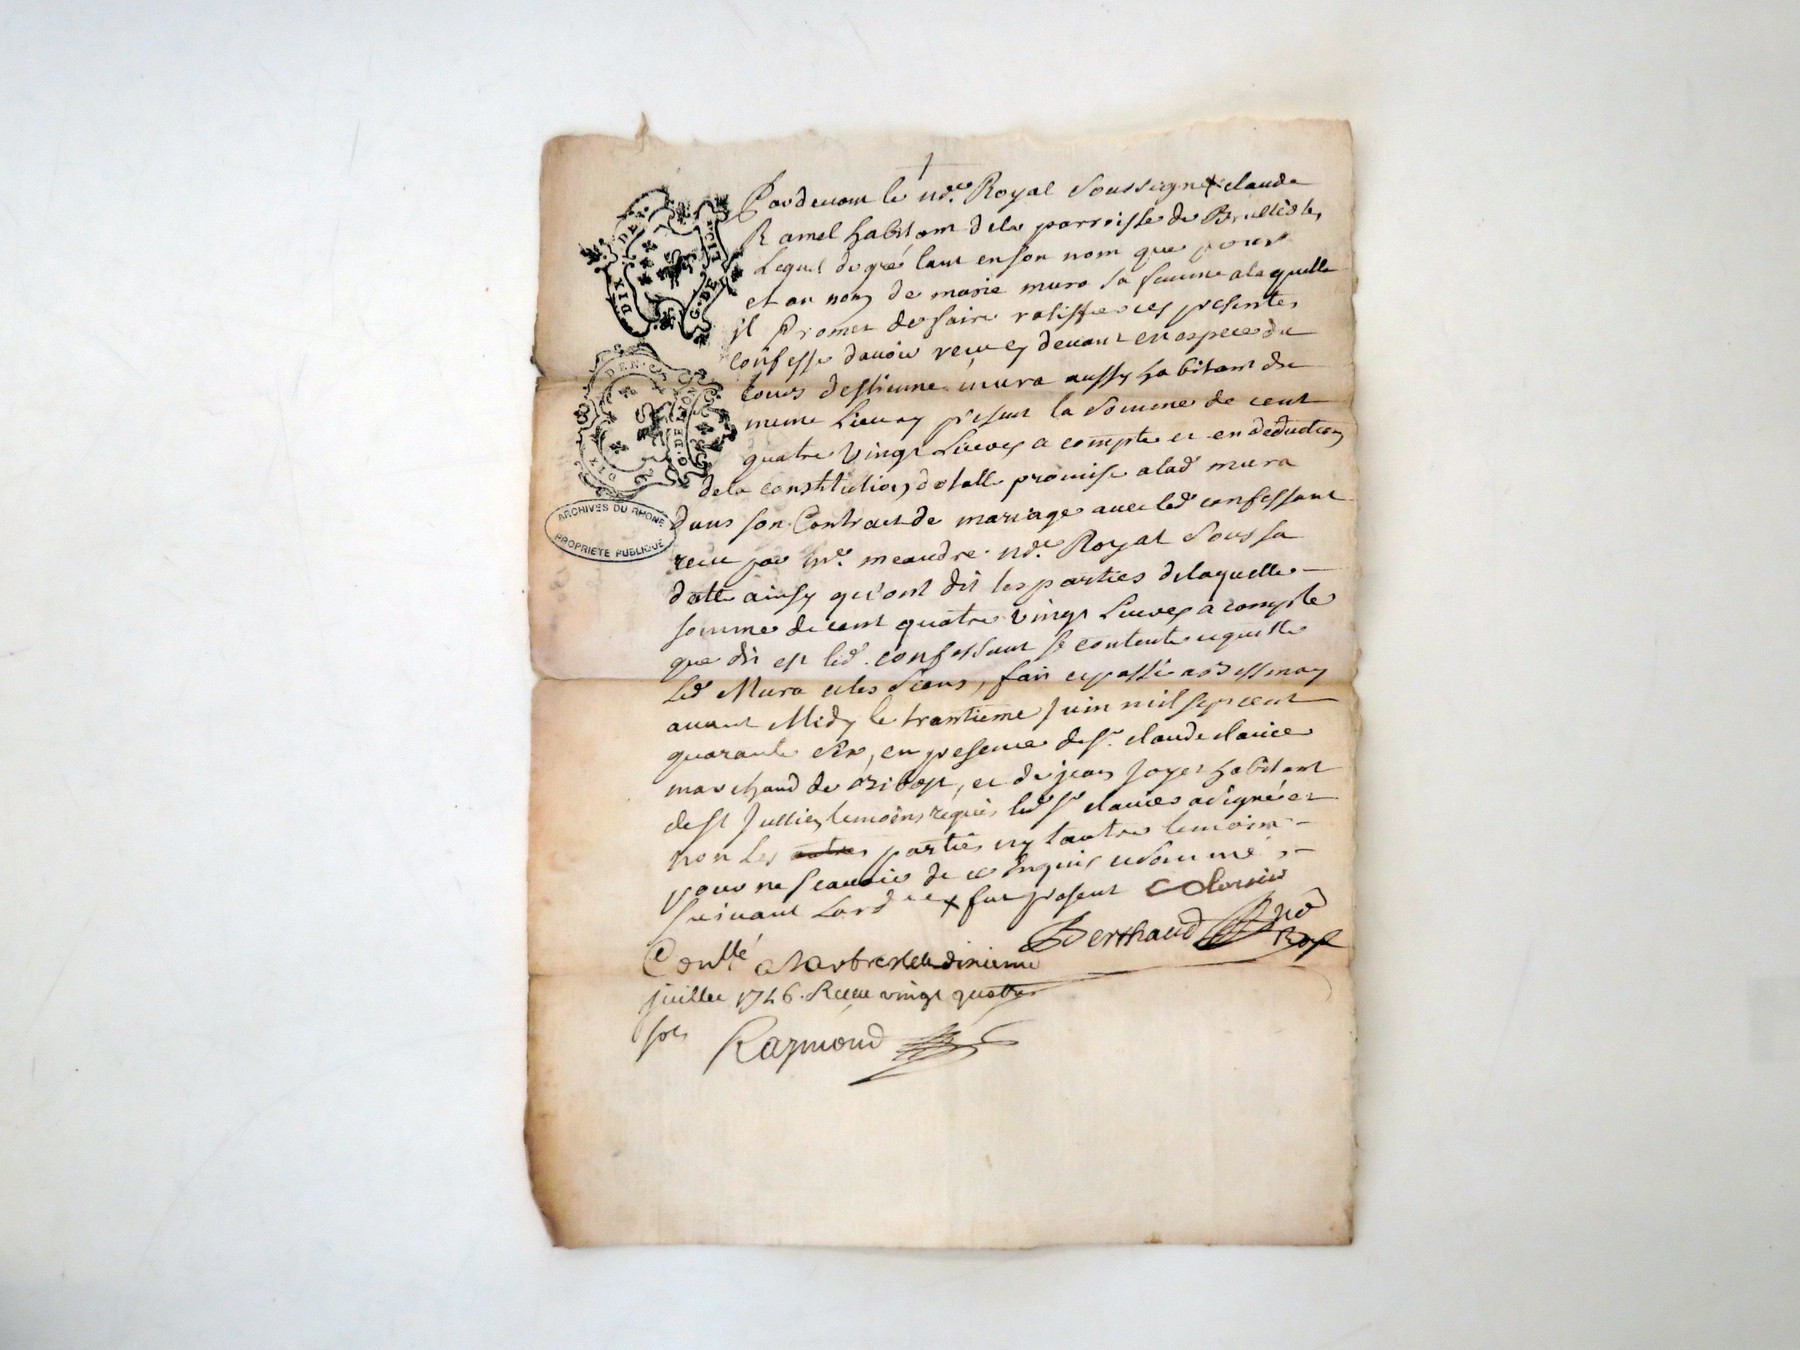 Pardevant le no.re Royal Soussigné x claude
Ramel habitant dela parroisse de Brullioles
Lequel de gré tant en son nom que pour
et au nom de marie mura sa femme a laquelle
il Promet de faire ratiffier ces presentes
confesse davoir recu cy devant en especes du
cours destienne mura aussy habitant du
meme Lieu cy present la Somme de cent
quatre Vingt Livres a compte et en deduction
dela constitution dotalle promise alad mura
dans son Contract de mariage avec led confessant
recu par me. meandre no.re Royal Sous sa
datte ainsy qu'ont dit les parties delaquelle
somme de cent quatre vingt Livres a compte
que dit est led. confessant se contente et quitte
Led Mura et les Siens, fait et passé a Bessenay
avant Midy le trantieme Juin mil sept cent
quarante six, en presence de Sr. claude
marchand de Ribost, et de jean Joyet habitant
de St Jullien temoins requis led Sr a signé et
non les autres parties ny lautre temoin
pour ne scavoir de ce Enquis et Sommé
suivant Lord.ce x fut present
Berthaud no.re
Royal
Conllé a Larbresle le dixieme
juillet 1746. Recu vingt quatre
sols
Raymond
DIX DEN.
G. DE LION
DIX DEN.
G. DE LION
ARCHIVES DU RHONE
PROPRIETE PUBLIQUE